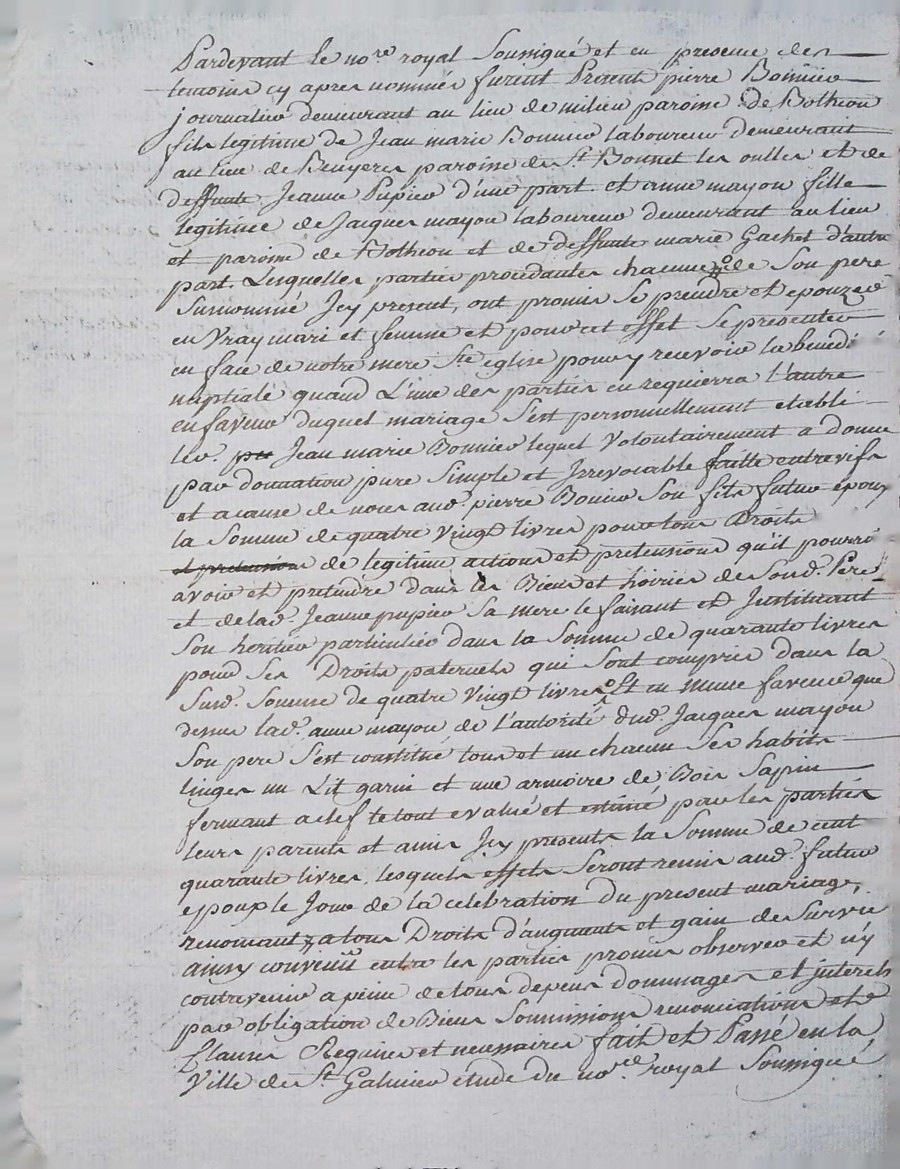 Pardevant le no.re royal Soussigné et en presence des
temoins cy apres nommés furent Present pierre Bonnier
journalier demeurant au lieu de milieu paroisse de Botheon
fils legitime de Jean marie Bonnier laboureur demeurant
au lieu de Bruyere paroisse de St Bonnet les oulles et de
deffunte Jeanne Pupier d'une part. et anne mayon fille
legitime de Jacques mayon laboureur demeurant au lieu
et paroisse de Botheon et de deffunte marie Gachet d'autre
part. Lesquelles parties procedantes chacune de Son pere
Surnommé Jcy present, ont promis Se prendre et epouzer
en Vray mari et femme et pour cet effet Se presenter
en face de notre mere Ste eglise pour y recevoir la benedi
nuptiale quand L'une des parties en requierra l'autre
en faveur duquel mariage S'est personnellement etabli
led. Jean marie Bonnier lequel Volontairement a donné
par donnation pure Simple et Jrrevocable faitte entre vifs
et a cause de noces aud. pierre Bonnier Son fils futur epoux
la Somme de quatre Vingt livres pour tous Droits
et pretensions de legitime actions et pretensions qu'il pourro
avoir et pretendre dans les Biens et hoiries de Sond. Pere
et de lad. Jeanne pupier Sa mere le faisant et Jnstituant
Son heritier particulier dans la Somme de quarante livres
pour Ses Droits paternels qui Sont compris dans la
Susd. Somme de quatre Vingt livres Et en meme faveur que
dessus lad. anne mayon de l'autorité dud. Jacques mayon
Son pere S'est constitué tous et un chacun Ses habits
linges un Lit garni et une armoire de Bois Sapin
fermant a clef le tout evalué et estimé par les parties
leurs parents et amis Jcy presents la Somme de cent
quarante livres. lesquels effets Seront remis aud. futur
epoux le Jour de la celebration du present mariage,
renoncant a tous Droits d'augments et gain de Survie
ainsy convenu entre les parties promis observer et n'y
contrevenir a peine de tous depens dommages et jnterets
par obligation de Biens Soumissions renonciations et
Clauses Requises et necessaires fait et Passé en la
Ville de St Galmier étude du no.re royal Soussigné